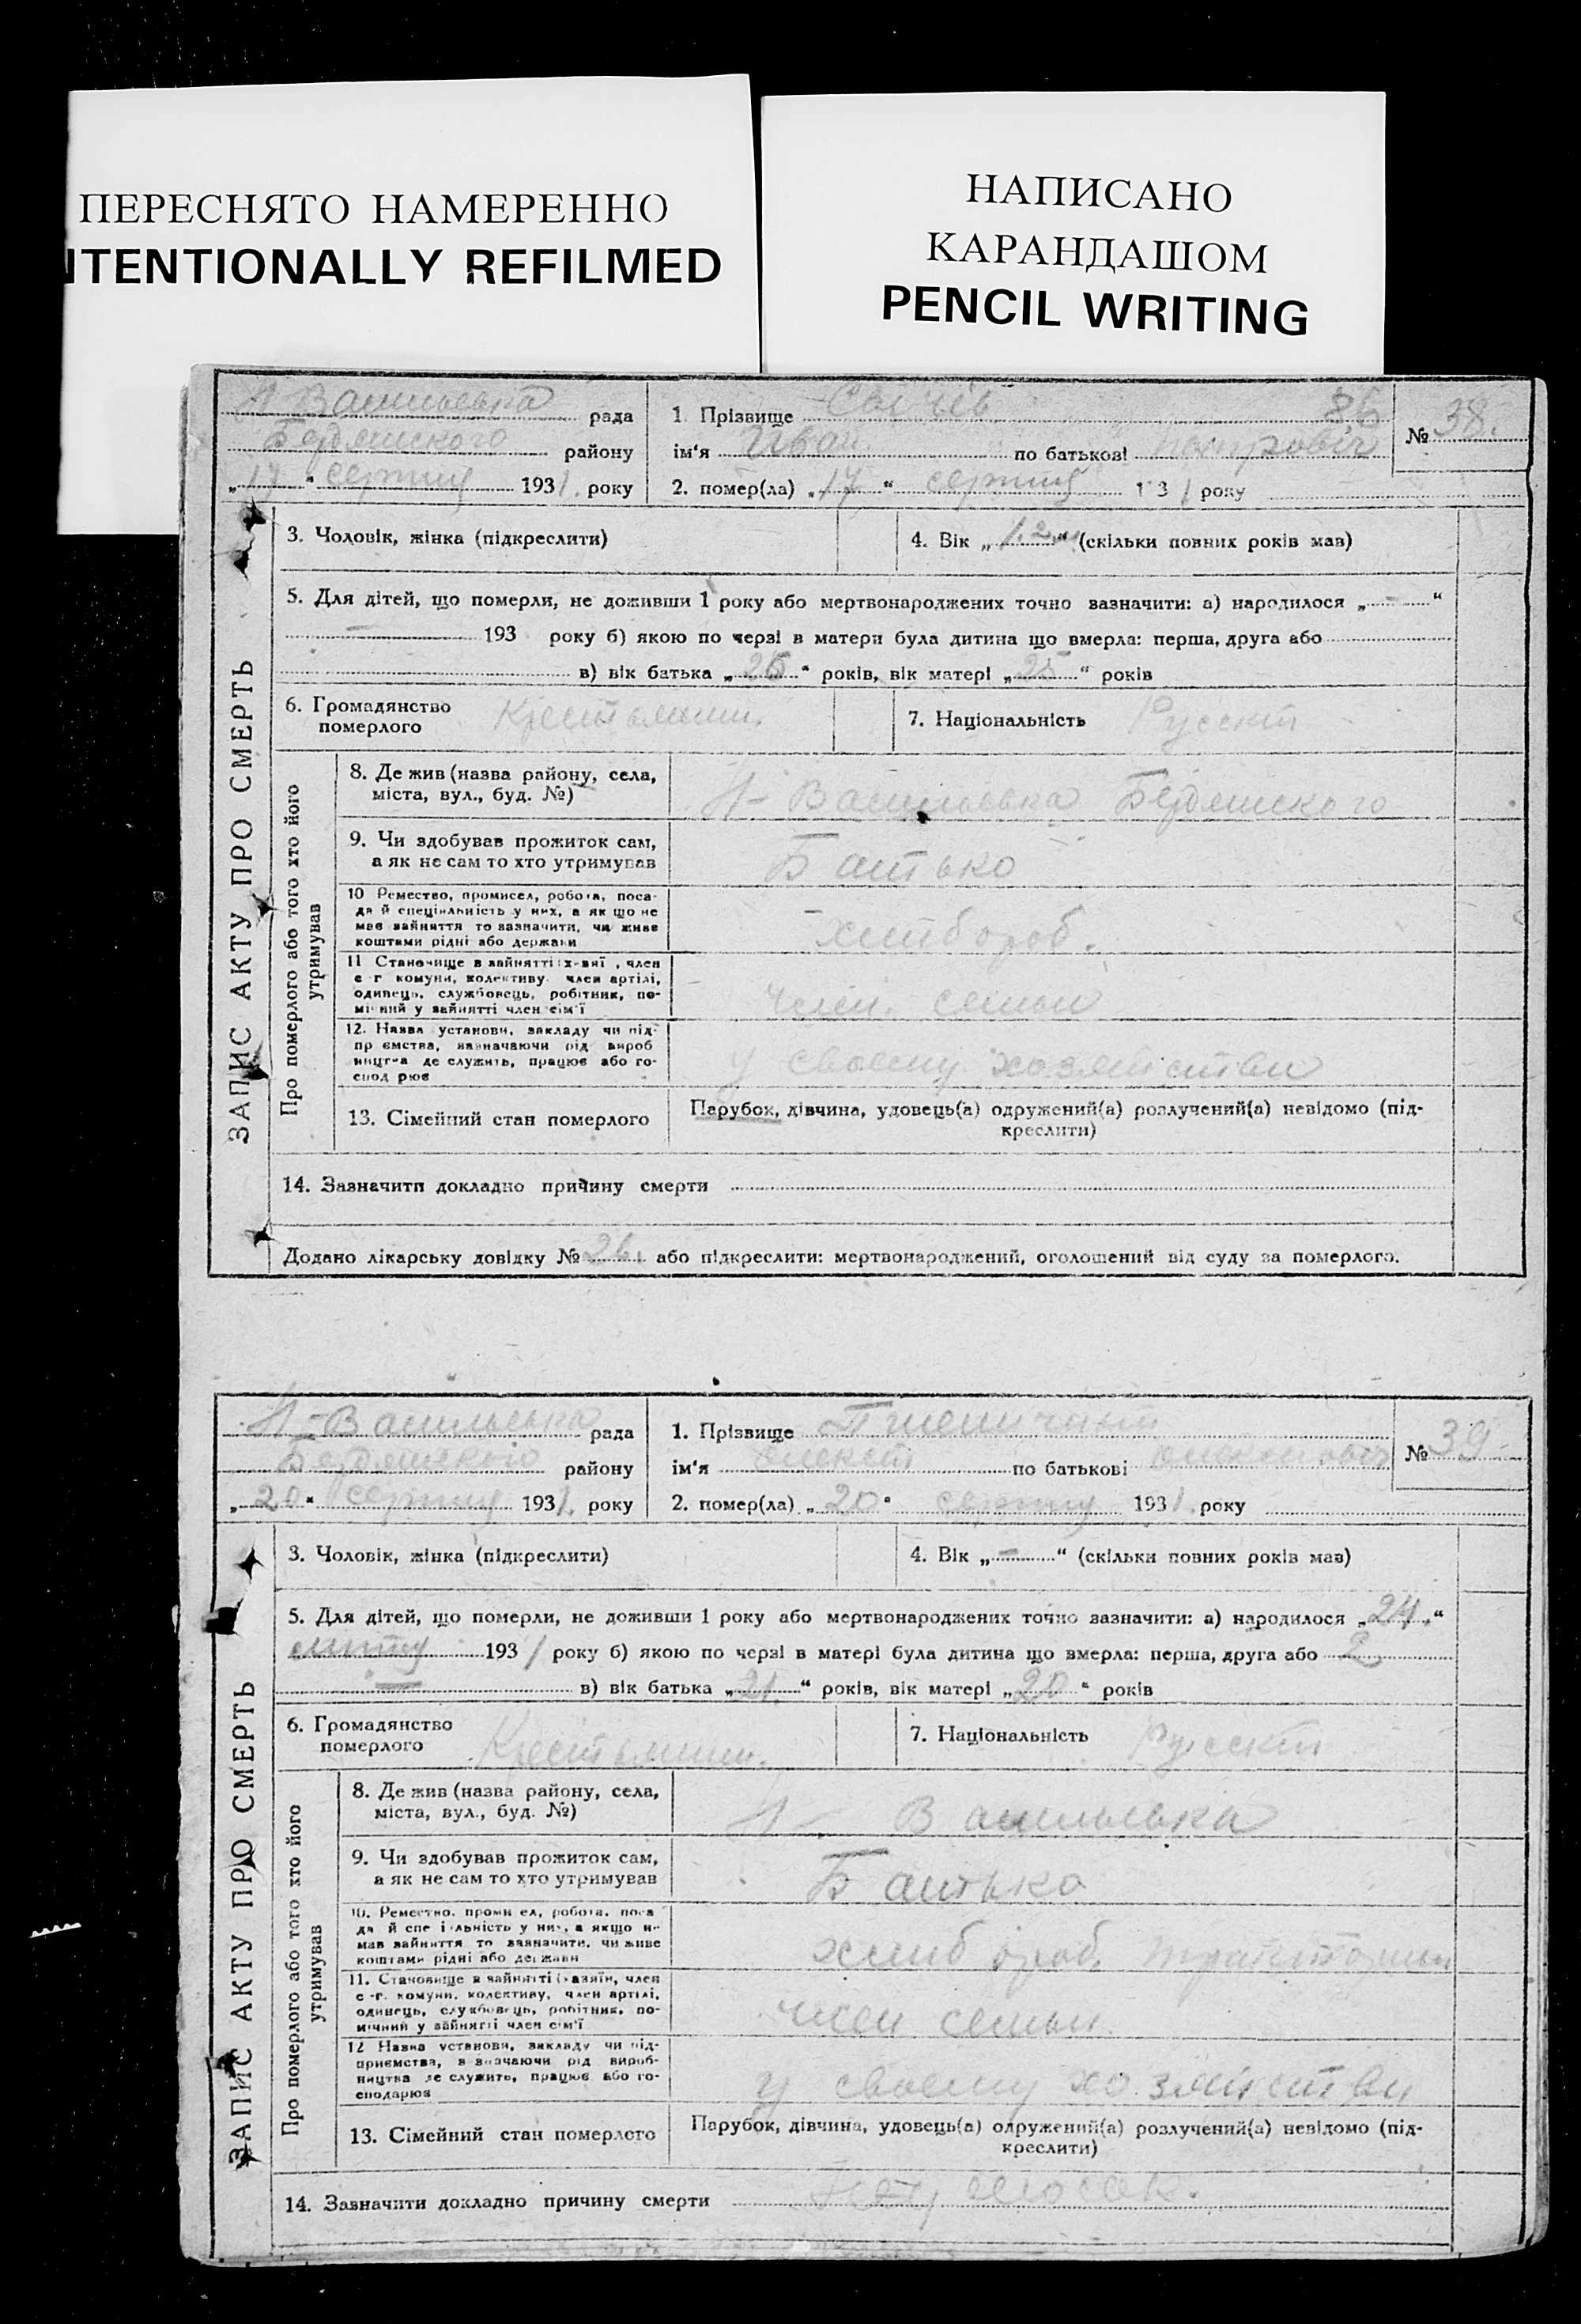 ПЕРЕСНЯТО НАМЕРЕННО
NTENTIONALLY REFILMED
НАПИСАНО
КАРАНДАШОМ
PENCIL WRITING
Н-Васильевка рада
Бердянского району
„17“ серпня 1931. року
1. Прізвище
86
ім'я Иван по батькові Петрович
2. помер(ла) „17“ серпня 1931 року
№ 38.
ЗАПИС АКТУ ПРО СМЕРТЬ
3. Чоловік, жінка (підкреслити)
4. Вік „ “ (скільки повних років мав)
5. Для дітей, що померли, не доживши 1 року або мертвонароджених точно зазначити: а) народилося „ – “
– 193 року б) якою по черзі в матери була дитина що вмерла: перша, друга або
в) вік батька „26“ років, вік матері „25“ років
6. Громадянство
померлого
Крестьянин.
7. Національність Русский
Про померлого або того хто його
утримував
8. Де жив (назва району, села,
міста, вул., буд. №)
Н-Васильевка Бердянского
9. Чи здобував прожиток сам,
а як не сам то хто утримував
Батько
10 Ремество, промисел, робота, поса-
да й спеціяльність у них, а як що не
має зайняття то зазначити, чи живе
коштами рідні або держави
хлибороб.
11 Становище в зайнятті: х-зяї , член
с г комуни, колективу. член артілі,
одинець, службовець, робітник, по-
мічний у зайнятті член сім'ї
член семьи
12. Назва установи, закладу чи під-
пр ємства, зазначаючи рід вироб
ництва де служить, працює або го-
спод рює
у своему хозяйстви
13. Сімейний стан померлого
Парубок, дівчина, удовець(а) одружений(а) розлучений(а) невідомо (під-
креслити)
14. Зазначити докладно причину смерти
Додано лікарську довідку № 26. або підкреслити: мертвонароджений, оголошений від суду за померлого.
Н-Васильевка рада
Бердянского району
„20“ серпня 1931. року
1. Прізвище
ім'я по батькові
2. помер(ла) „20“ серпня 1931. року
№ 39
ЗАПИС АКТУ ПРО СМЕРТЬ
3. Чоловік, жінка (підкреслити)
4. Вік „ – “ (скільки повних років мав)
5. Для дітей, що померли, не доживши 1 року або мертвонароджених точно зазначити: а) народилося „24.“
193 1 року б) якою по черзі в матері була дитина що вмерла: перша, друга або 2
– в) вік батька „21.“ років, вік матері „20“ років
6. Громадянство
померлого
Крестьянин.
7. Національність Русский
Про померлого або того хто його
утримував
8. Де жив (назва району, села,
міста, вул., буд. №)
Н- Васильевка
9. Чи здобував прожиток сам,
а як не сам то хто утримував
Батько
10. Ремество. проми ел, робота. поса
да й спе і яльність у них, а якщо не
має зайняття то зазначити. чи живе
коштами рідні або держави
хлибороб.
11. Становище в зайнятті (хазяїн, член
с -г. комуни. колективу, член артілі,
одинець, службовець, робітник, по-
мічний у зайнятті член сім'ї
член семьи
12 Назва установи, закладу чи під-
приємства, з значаючи рід вироб-
ництва де служить, працює або го-
сподарює
у своему хозяйстви
13. Сімейний стан померлого
Парубок, дівчина, удовець(а) одружений(а) розлучений(а) невідомо (під-
креслити)
14. Зазначити докладно причину смерти